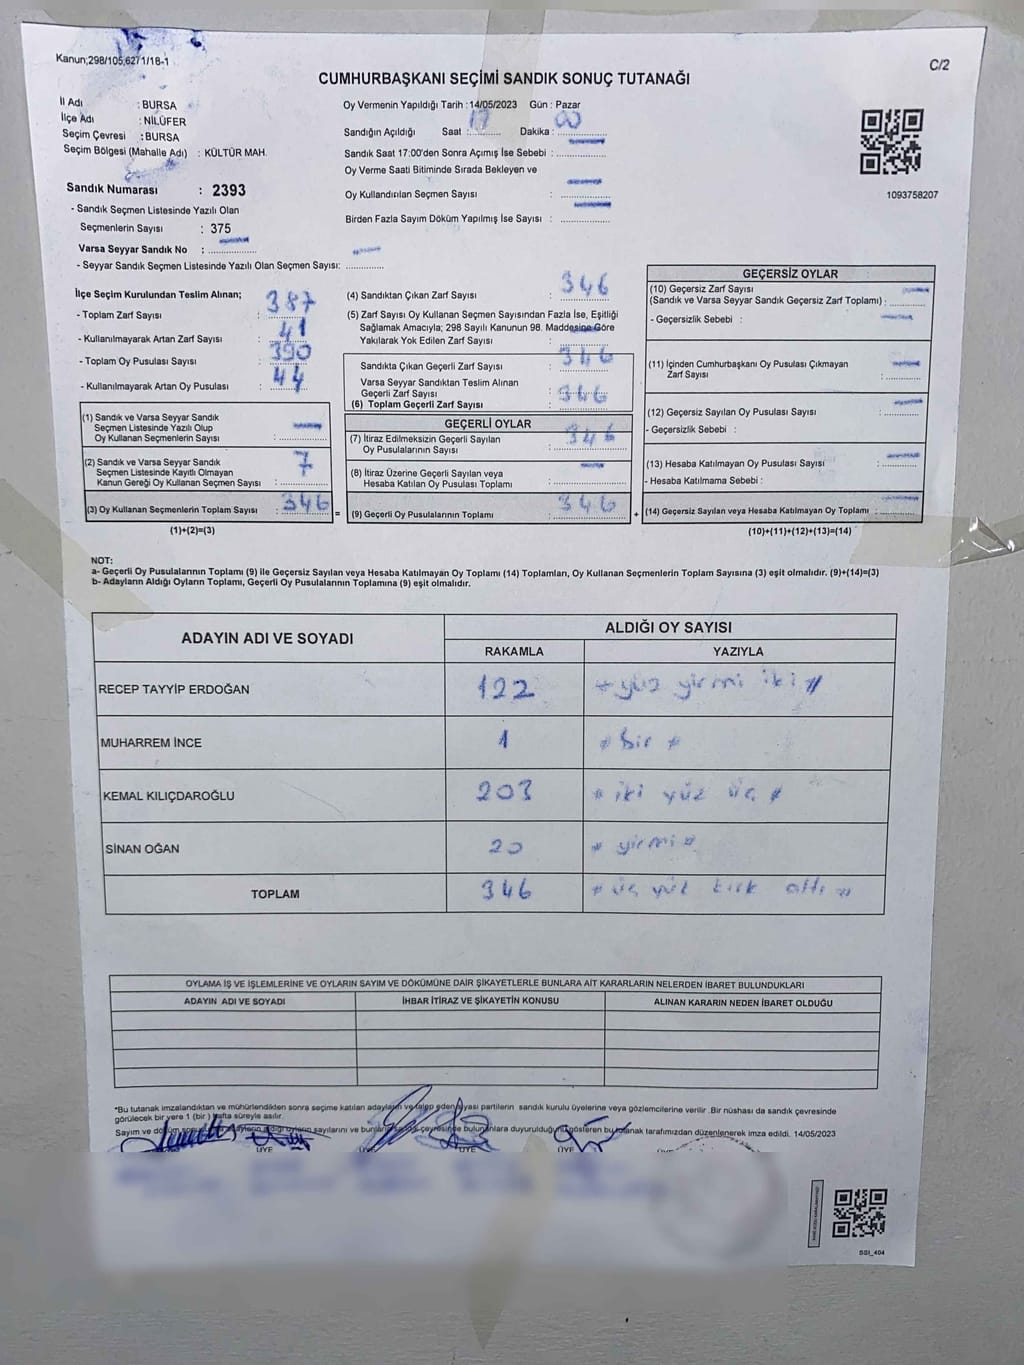 Kanun;298/105,6271/18-1
C/2
CUMHURBAŞKANI SEÇİMİ SANDIK SONUÇ TUTANAĞI
İl Adı : BURSA
İlçe Adı : NİLÜFER
Seçim Çevresi : BURSA
Seçim Bölgesi (Mahalle Adı) : KÜLTÜR MAH.
Sandık Numarası : 2393
- Sandık Seçmen Listesinde Yazılı Olan
Seçmenlerin Sayısı : 375
Varsa Seyyar Sandık No :
- Seyyar Sandık Seçmen Listesinde Yazılı Olan Seçmen Sayısı:
Oy Vermenin Yapıldığı Tarih : 14/05/2023 Gün : Pazar
Sandığın Açıldığı Saat : 17 Dakika : 00
Sandık Saat 17:00'den Sonra Açımış İse Sebebi :
Oy Verme Saati Bitiminde Sırada Bekleyen ve
Oy Kullandırılan Seçmen Sayısı :
Birden Fazla Sayım Döküm Yapılmış İse Sayısı :
1093758207
İlçe Seçim Kurulundan Teslim Alınan;
- Toplam Zarf Sayısı : 387
- Kullanılmayarak Artan Zarf Sayısı : 41
- Toplam Oy Pusulası Sayısı : 390
- Kullanılmayarak Artan Oy Pusulası : 44
(1) Sandık ve Varsa Seyyar Sandık
Seçmen Listesinde Yazılı Olup
Oy Kullanan Seçmenlerin Sayısı :
(2) Sandık ve Varsa Seyyar Sandık
Seçmen Listesinde Kayıtlı Olmayan
Kanun Gereği Oy Kullanan Seçmen Sayısı : 7
(3) Oy Kullanan Seçmenlerin Toplam Sayısı : 346
(1)+(2)=(3)
(4) Sandıktan Çıkan Zarf Sayısı : 346
(5) Zarf Sayısı Oy Kullanan Seçmen Sayısından Fazla İse, Eşitliği
Sağlamak Amacıyla; 298 Sayılı Kanunun 98. Maddesine Göre
Yakılarak Yok Edilen Zarf Sayısı :
Sandıkta Çıkan Geçerli Zarf Sayısı : 346
Varsa Seyyar Sandıktan Teslim Alınan
Geçerli Zarf Sayısı
(6) Toplam Geçerli Zarf Sayısı : 346
GEÇERLİ OYLAR
(7) İtiraz Edilmeksizin Geçerli Sayılan
Oy Pusulalarının Sayısı : 346
(8) İtiraz Üzerine Geçerli Sayılan veya
Hesaba Katılan Oy Pusulası Toplamı :
(9) Geçerli Oy Pusulalarının Toplamı : 346
GEÇERSİZ OYLAR
(10) Geçersiz Zarf Sayısı
(Sandık ve Varsa Seyyar Sandık Geçersiz Zarf Toplamı) :
- Geçersizlik Sebebi :
(11) İçinden Cumhurbaşkanı Oy Pusulası Çıkmayan
Zarf Sayısı :
(12) Geçersiz Sayılan Oy Pusulası Sayısı :
- Geçersizlik Sebebi :
(13) Hesaba Katılmayan Oy Pusulası Sayısı :
- Hesaba Katılmama Sebebi :
(14) Geçersiz Sayılan veya Hesaba Katılmayan Oy Toplamı :
(10)+(11)+(12)+(13)=(14)
NOT:
a- Geçerli Oy Pusulalarının Toplamı (9) ile Geçersiz Sayılan veya Hesaba Katılmayan Oy Toplamı (14) Toplamları, Oy Kullanan Seçmenlerin Toplam Sayısına (3) eşit olmalıdır. (9)+(14)=(3)
b- Adayların Aldığı Oyların Toplamı, Geçerli Oy Pusulalarının Toplamına (9) eşit olmalıdır.
ADAYIN ADI VE SOYADI
ALDIĞI OY SAYISI
RAKAMLA YAZIYLA
RECEP TAYYİP ERDOĞAN 122 yüz yirmi iki
MUHARREM İNCE 1 bir
KEMAL KILIÇDAROĞLU 203 iki yüz üç
SİNAN OĞAN 20 yirmi
TOPLAM 346 üç yüz kırk altı
OYLAMA İŞ VE İŞLEMLERİNE VE OYLARIN SAYIM VE DÖKÜMÜNE DAİR ŞİKAYETLERLE BUNLARA AİT KARARLARIN NELERDEN İBARET BULUNDUKLARI
ADAYIN ADI VE SOYADI İHBAR İTİRAZ VE ŞİKAYETİN KONUSU ALINAN KARARIN NEDEN İBARET OLDUĞU
*Bu tutanak imzalandıktan ve mühürlendikten sonra seçime katılan adayların ve talep eden siyasi partilerin sandık kurulu üyelerine veya gözlemcilerine verilir. Bir nüshası da sandık çevresinde
görülecek bir yere 1 (bir) hafta süreyle asılır.
Sayım ve döküm adayların aldığı oyların sayılarını ve bunların çevresinde bulunanlara duyurulduğunu gösteren bu tutanak tarafımızdan düzenlenerek imza edildi. 14/05/2023
ÜYE ÜYE ÜYE ÜYE
SSI_404